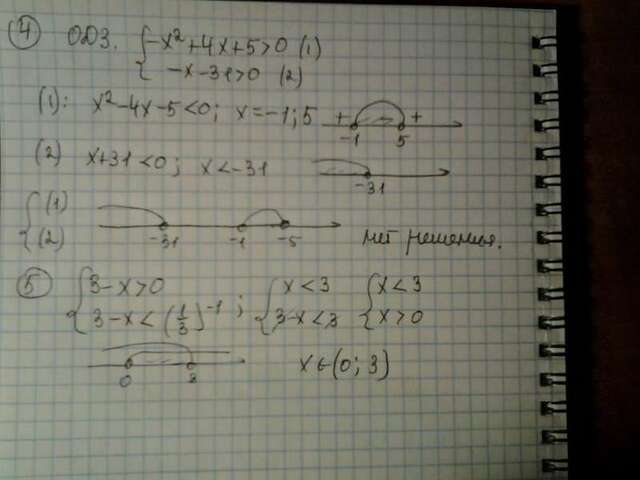 ④ ОДЗ. { -x²+4x+5>0 (1)
{ -x-31>0 (2)
(1): x²-4x-5<0; x=-1; 5 + - + -1 5
(2) x+31<0; x<-31 -31
{ (1)
{ (2) -31 -1 -5 нет решения.
⑤ { 3-x>0 ; { x<3 { x<3
{ 3-x<(1/3]⁻¹ { 3-x<3 { x>0
0 3 x∈(0; 3)